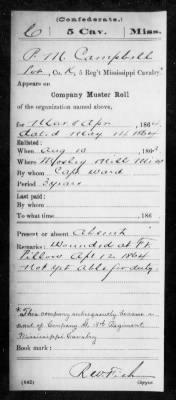 (Confederate.)
C 5 Cav. Miss.
P. M. Campbell
Pvt, Co. K, 5 Reg't Mississippi Cavalry*
Appears on
Company Muster Roll
of the organization named above,
for Mar & Apr, 1864.
dated May 11 1864
Enlisted:
When Aug 10, 1863
Where Mosley Mill Miss
By whom Capt Ward
Period 3 years
Last paid:
By whom
To what time , 186
Present or absent Absent
Remarks: Wounded at Ft.
Pillow Apr 12 1864
Not yet able for duty.
*This company subsequently became a
part of Company H, Regiment
Mississippi Cavalry
Book mark:
R W Fish
(642) Copyist.